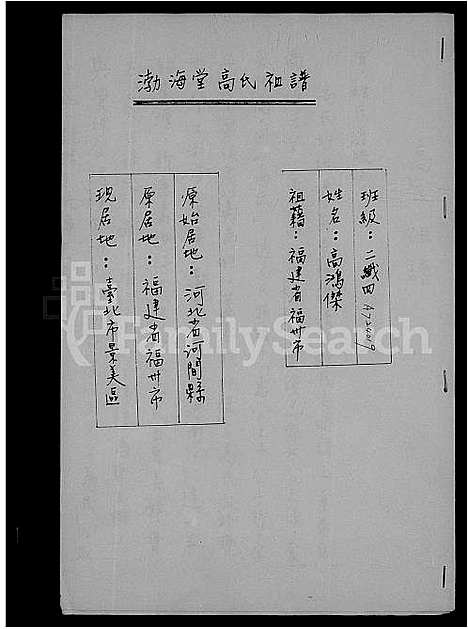 渤海堂高氏祖譜
班級：二纖四 A724019
姓名：高鴻傑
祖藉：福建省福州市
原始居地：河北省河間縣
原居地：福建省福州市
現居地：臺北市景美區
FamilySearch